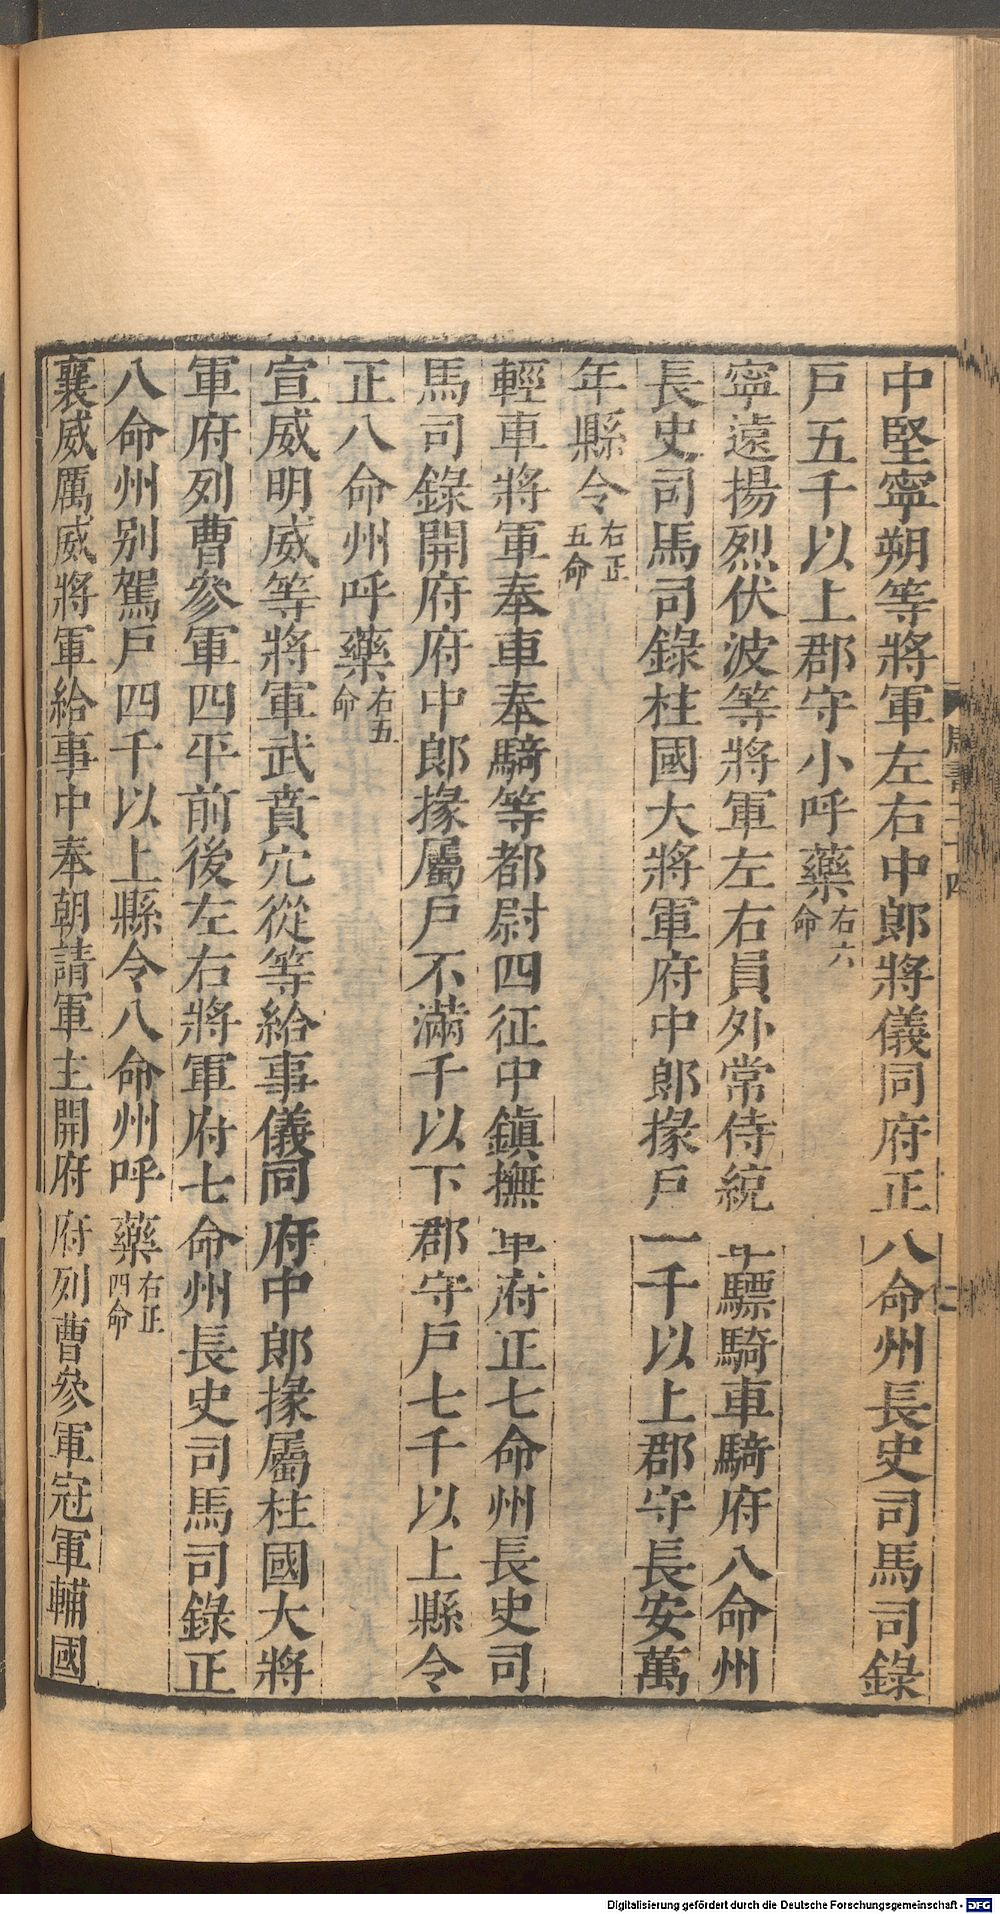 中堅寧朔等將軍左右中郎將儀同府正八命州長史司馬司錄
戶五千以上郡守小呼藥右六命
寧遠揚烈伏波等將軍左右員外常侍統軍驃騎車騎府八命州
長史司馬司錄柱國大將軍府中郎掾戶一千以上郡守長安萬
年縣令右正五命
輕車將軍奉車奉騎等都尉四征中鎮撫軍府正七命州長史司
馬司錄開府府中郎掾屬戶不滿千以下郡守戶七千以上縣令
正八命州呼藥右五命
宣威明威等將軍武賁宂從等給事儀同府中郎掾屬柱國大將
軍府列曹參軍四平前後左右將軍府七命州長史司馬司錄正
八命州別駕戶四千以上縣令八命州呼藥右正四命
襄威厲威將軍給事中奉朝請軍主開府府列曹參軍冠軍輔國
周書二十四
Digitalisierung gefördert durch die Deutsche Forschungsgemeinschaft - DFG